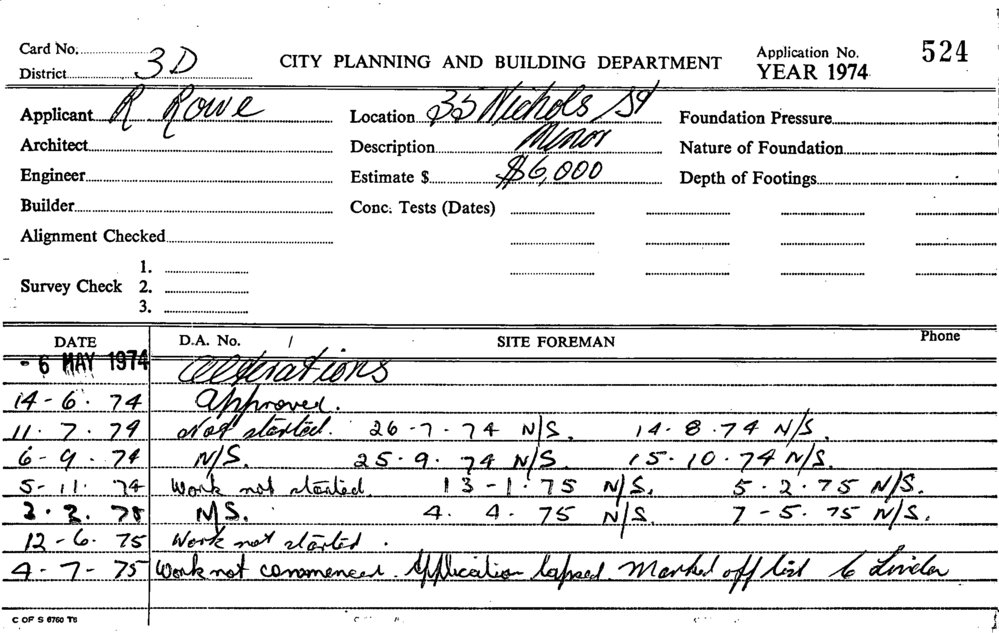 Card No. Application No. 524
District 3D CITY PLANNING AND BUILDING DEPARTMENT YEAR 1974
Applicant R Rowe Location 35 Nichols St Foundation Pressure
Architect Description Minor Nature of Foundation
Engineer Estimate $ $6,000 Depth of Footings
Builder Conc. Tests (Dates)
Alignment Checked
1.
Survey Check 2.
3.
DATE D.A. No. / SITE FOREMAN Phone
- 6 MAY 1974 Alterations
14 - 6 . 74 Approved.
11 . 7 . 74 Not started. 26 - 7 - 74 N/S. 14 . 8 . 74 N/S.
6 - 9 . 74 N/S. 25 . 9 . 74 N/S. 15 . 10 . 74 N/S.
5 - 11 . 74 Work not started. 13 - 1 . 75 N/S. 5 . 2 . 75 N/S.
N/S. 4 . 4 . 75 N/S. 7 - 5 . 75 N/S.
12 - 6 . 75 Work not started.
4 - 7 - 75 Work not commenced. Application lapsed. Marked off list
C OF S 6760 T6